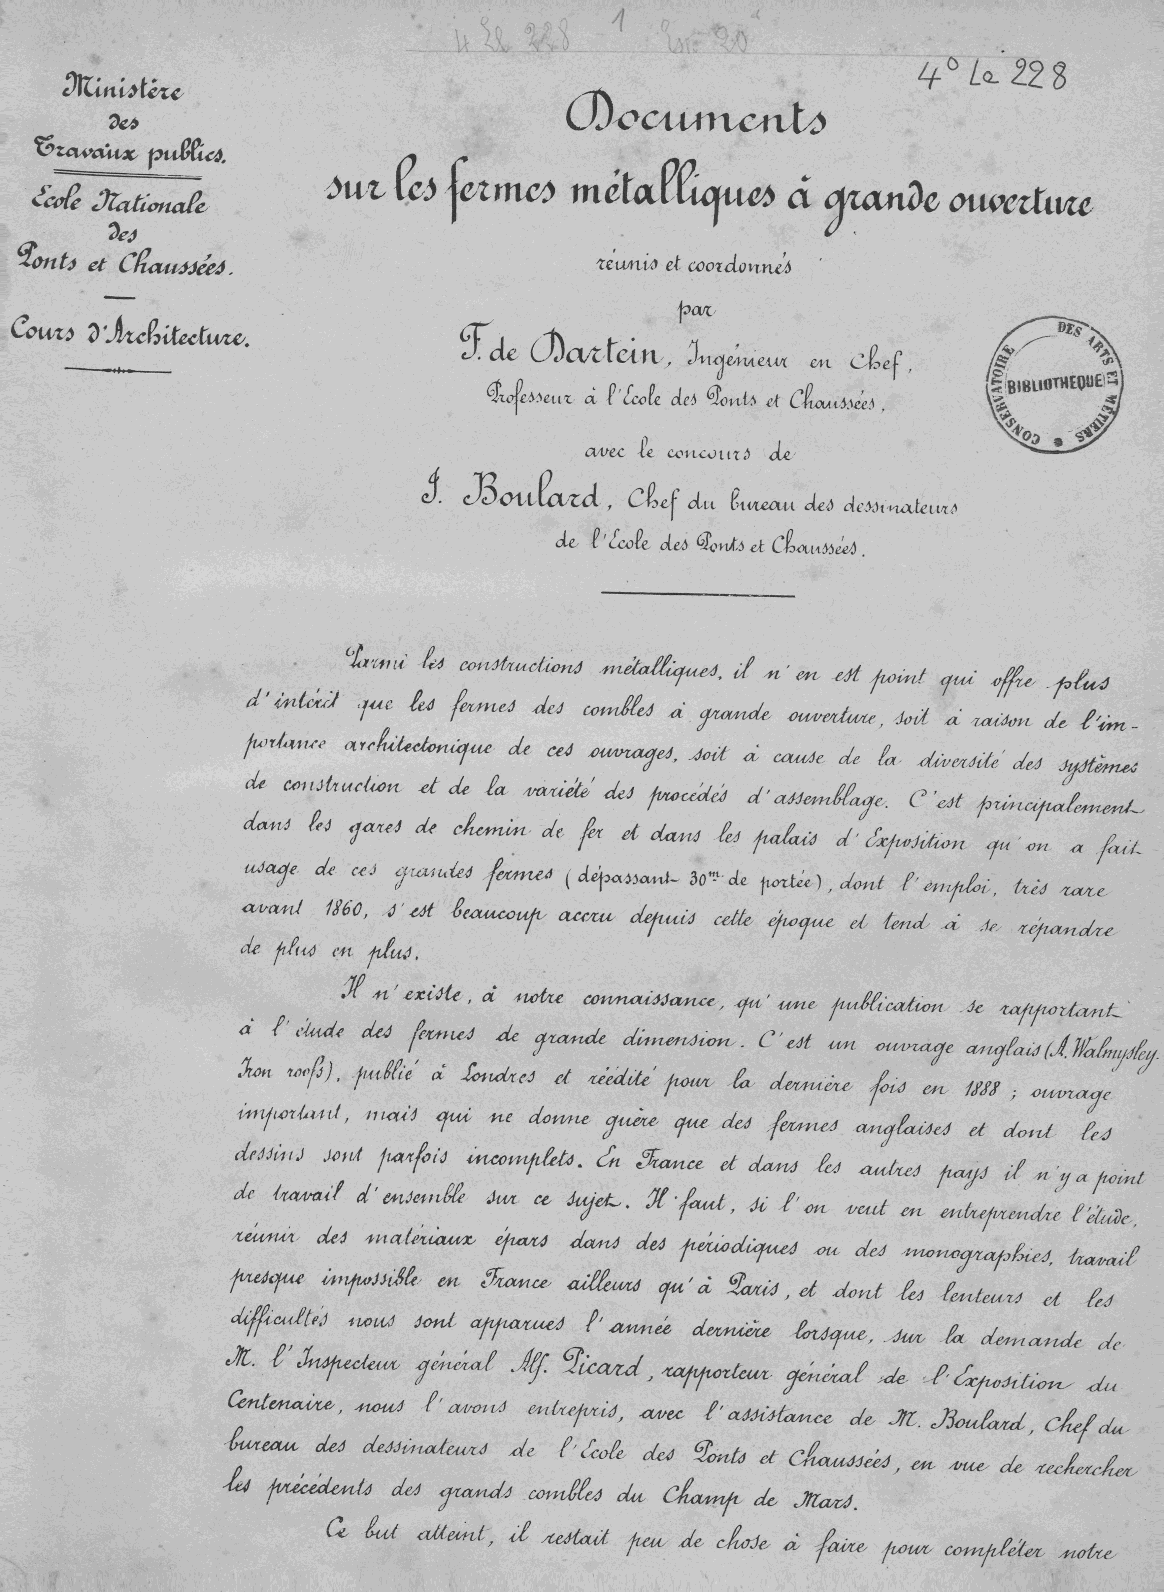 4 Le 228 1
4° Le 228
Ministère
des
Travaux publics.
Ecole Nationale
des
Ponts et Chaussées.
Cours d'Architecture.
Documents
sur les fermes métalliques à grande ouverture
réunis et coordonnés
par
F. de Dartein, Ingénieur en Chef,
Professeur à l'Ecole des Ponts et Chaussées,
avec le concours de
J. Boulard, Chef du bureau des dessinateurs
de l'Ecole des Ponts et Chaussées.
CONSERVATOIRE DES ARTS ET MÉTIERS
BIBLIOTHEQUE
Parmi les constructions métalliques, il n'en est point qui offre plus
d'intérêt que les fermes des combles à grande ouverture, soit à raison de l'im-
portance architectonique de ces ouvrages, soit à cause de la diversité des systèmes
de construction et de la variété des procédés d'assemblage. C'est principalement
dans les gares de chemin de fer et dans les palais d'Exposition qu'on a fait
usage de ces grandes fermes (dépassant 30m de portée), dont l'emploi, très rare
avant 1860, s'est beaucoup accru depuis cette époque et tend à se répandre
de plus en plus.
Il n'existe, à notre connaissance, qu'une publication se rapportant
à l'étude des fermes de grande dimension. C'est un ouvrage anglais (A. Walmysley.
Iron roofs), publié à Londres et réédité pour la dernière fois en 1888 ; ouvrage
important, mais qui ne donne guère que des fermes anglaises et dont les
dessins sont parfois incomplets. En France et dans les autres pays il n'y a point
de travail d'ensemble sur ce sujet. Il faut, si l'on veut en entreprendre l'étude,
réunir des matériaux épars dans des périodiques ou des monographies, travail
presque impossible en France ailleurs qu'à Paris, et dont les lenteurs et les
difficultés nous sont apparues l'année dernière lorsque, sur la demande de
M. l'Inspecteur général Alf. Picard, rapporteur général de l'Exposition du
Centenaire, nous l'avons entrepris, avec l'assistance de M. Boulard, Chef du
bureau des dessinateurs de l'Ecole des Ponts et Chaussées, en vue de rechercher
les précédents des grands combles du Champ de Mars.
Ce but atteint, il restait peu de chose à faire pour compléter notre